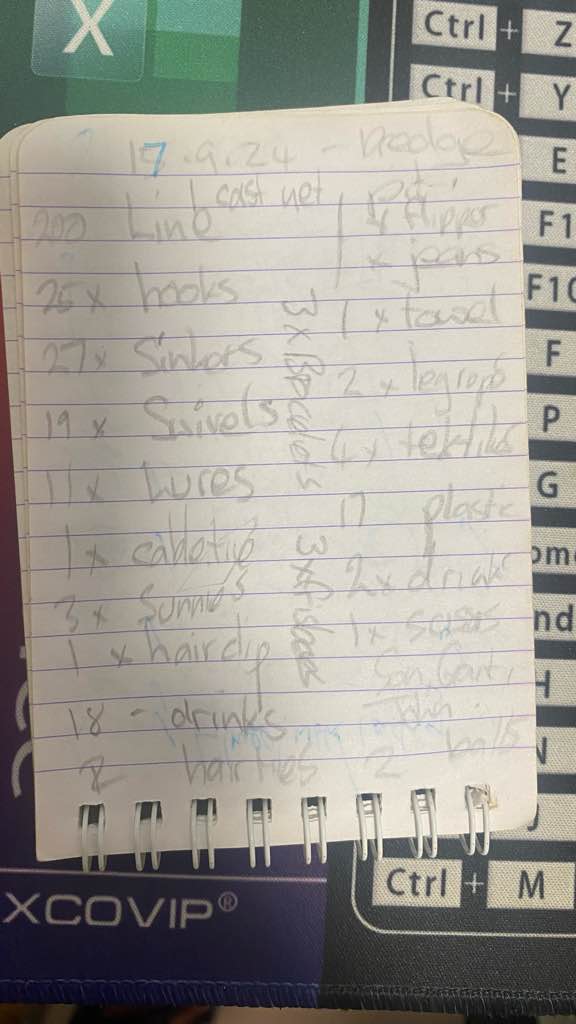 X
Ctrl + Z
Ctrl + Y
E
F1
F10
F
P
G
ome
nd
H
N
J
Ctrl + M
XCOVIP®
17.9.24 -
cast net
200 Line
25 x hooks
27x Sinkers
19 x Swivels
11x Lures
1 x cable tie
3 x Sunnies
1 x hairclip
18 - drinks
2 hairties
3 x Bracelets
3 x
1 x flipper
1 x jeans
1 x towel
2 x legrops
4 x
17 plastic
2 x drink
1 x
John
2 balls